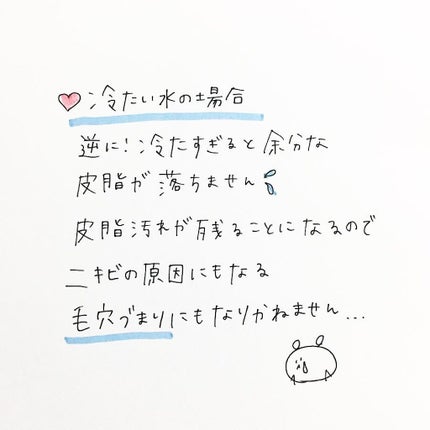 冷たい水の場合
逆に!冷たすぎると余分な
皮脂が落ちません
皮脂汚れが残ることになるので
ニキビの原因にもなる
毛穴づまりにもなりかねません...